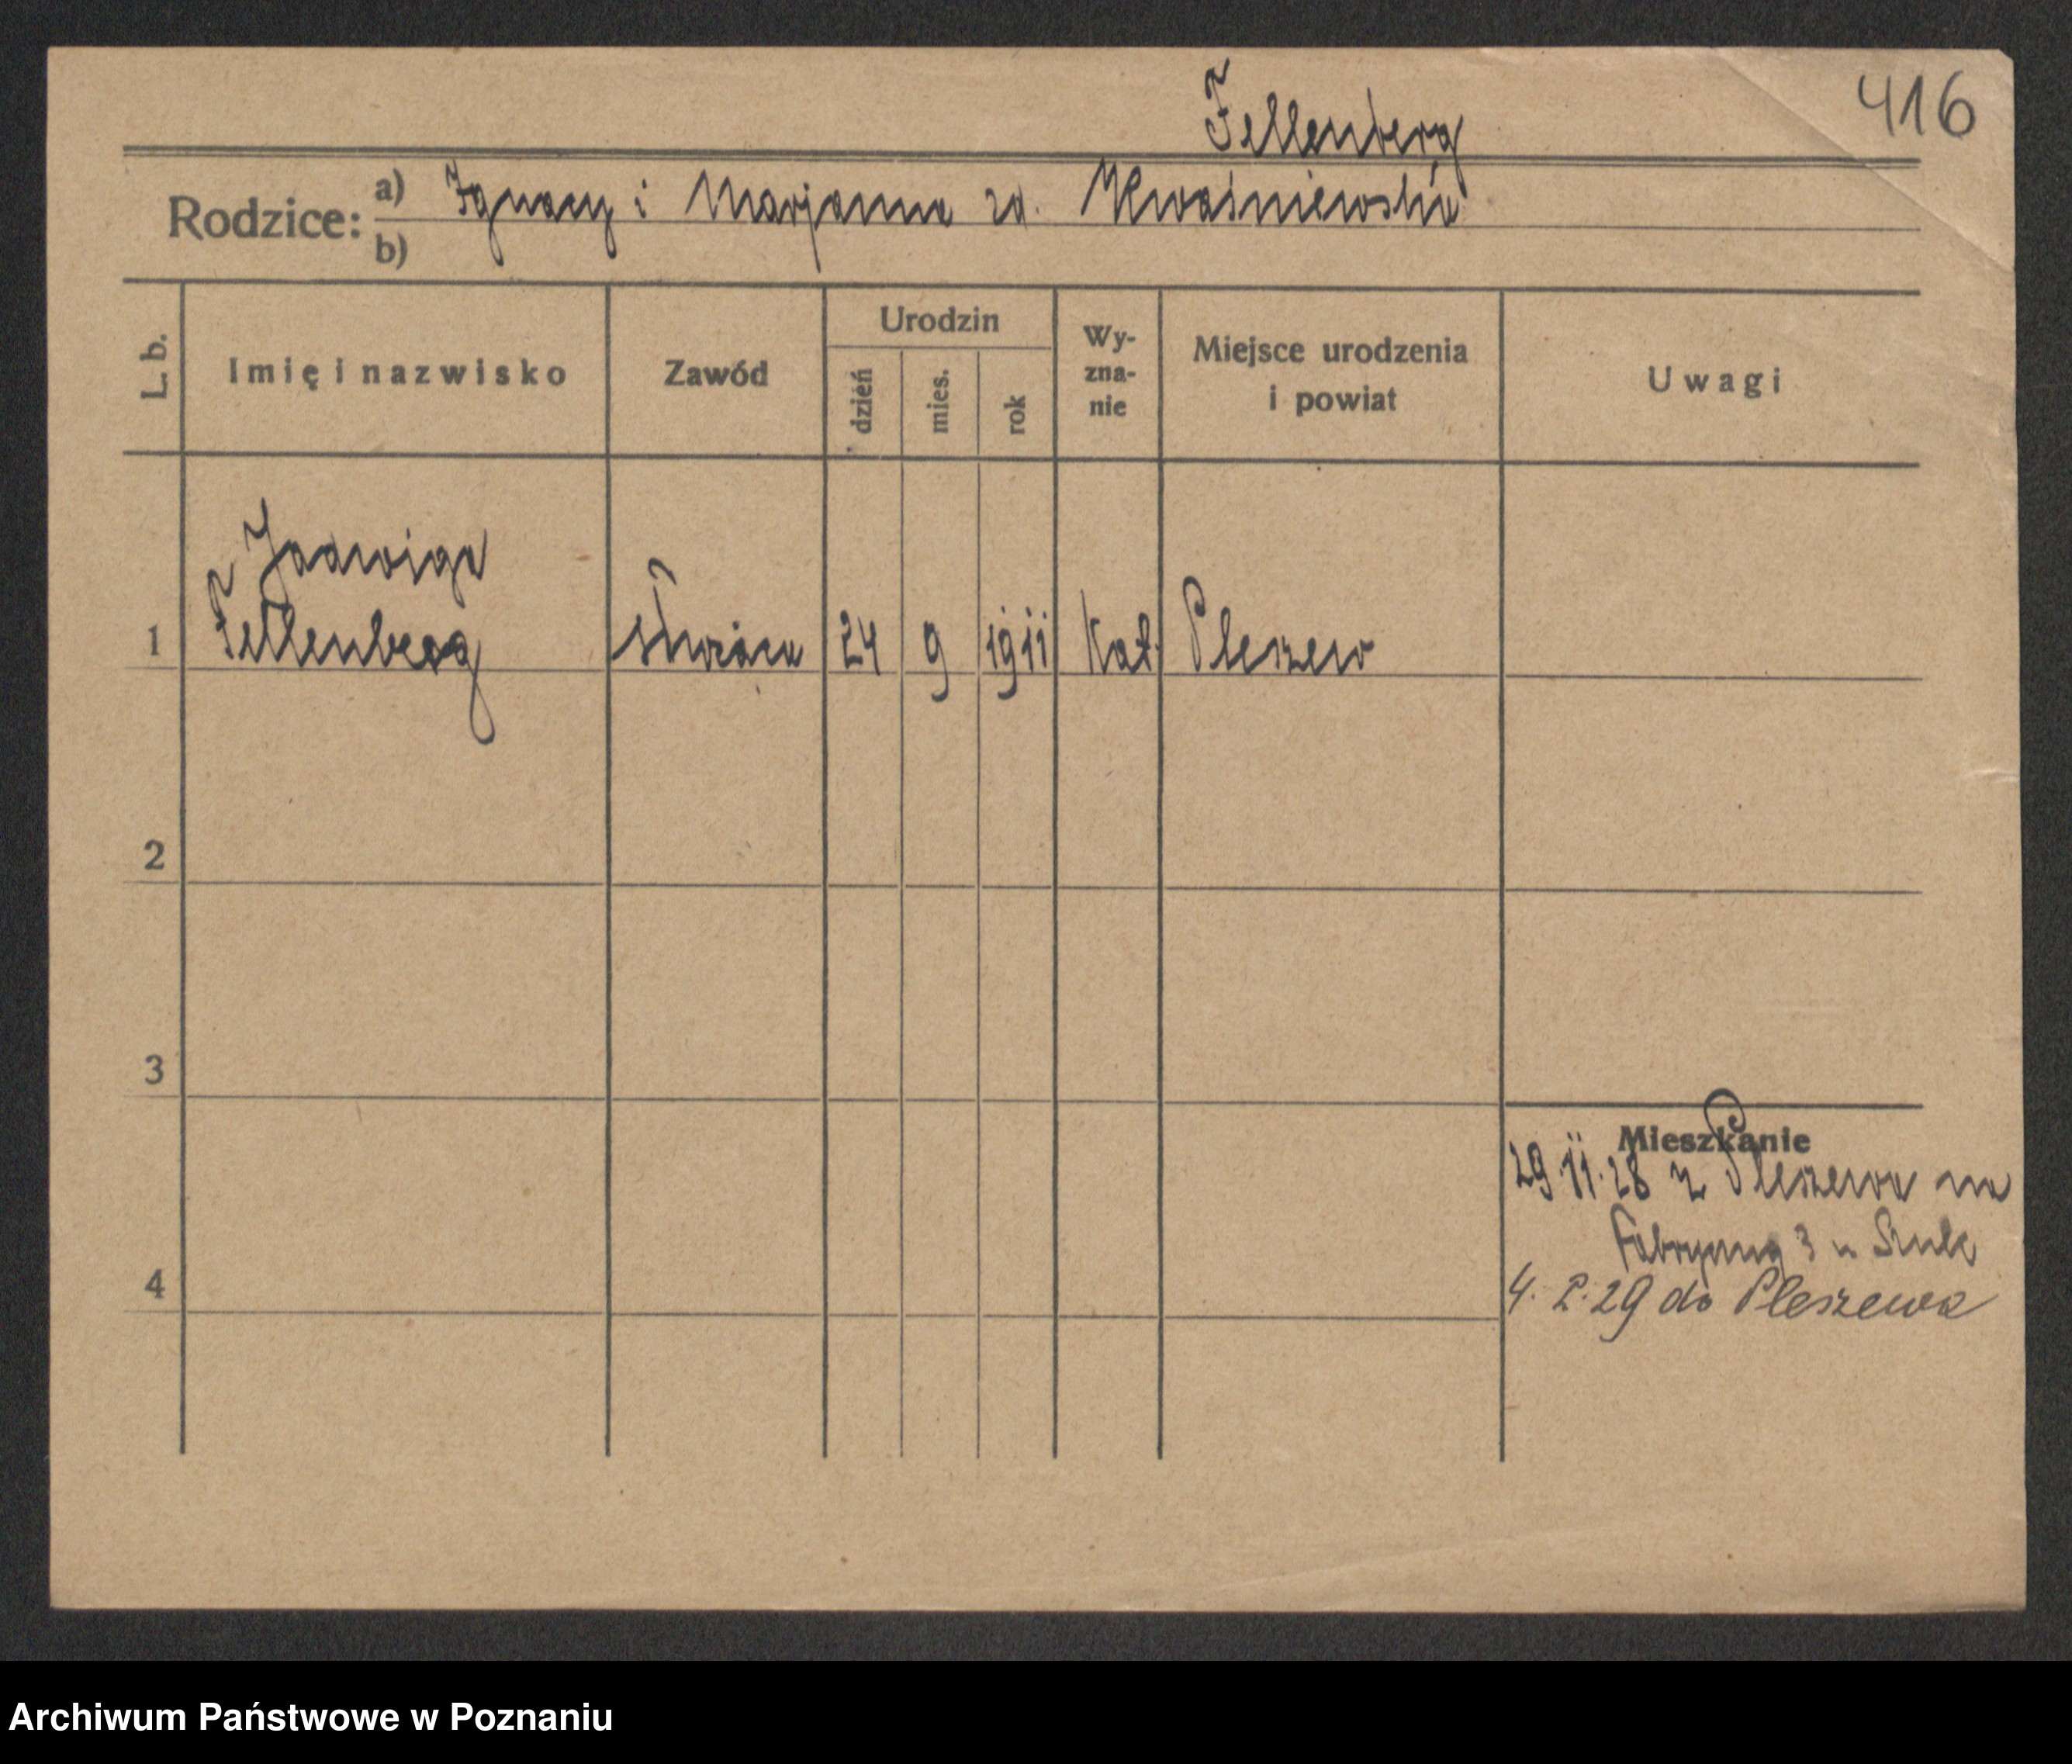 416
Fellenberg
Rodzice: a) Ignacy i Marjanna zd. Kwaśniewska
b)
L. b. Imię i nazwisko Zawód Urodzin dzień mies. rok Wy-zna-nie Miejsce urodzenia i powiat Uwagi
Jadwiga
1 Fellenberg służąca 24 9 1911 Kat. Pleszew
2
3
Mieszkanie
29.11.28 z Pleszewa na
Fabryczną 3 u Szulc
4
4. 2. 29 do Pleszewa
Archiwum Państwowe w Poznaniu